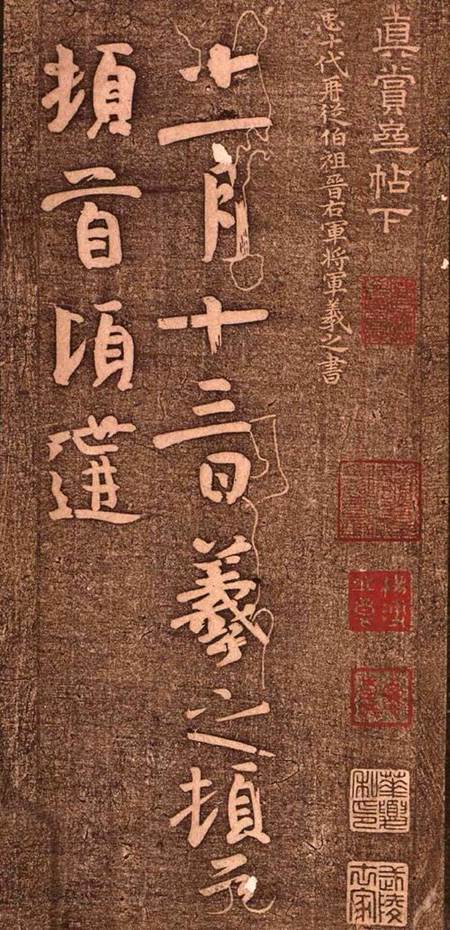 真賞齋帖下
𢘑十代再從伯祖晉右軍將軍羲之書
十一月十三日羲之頓首
頓首頃遘
武陵世家